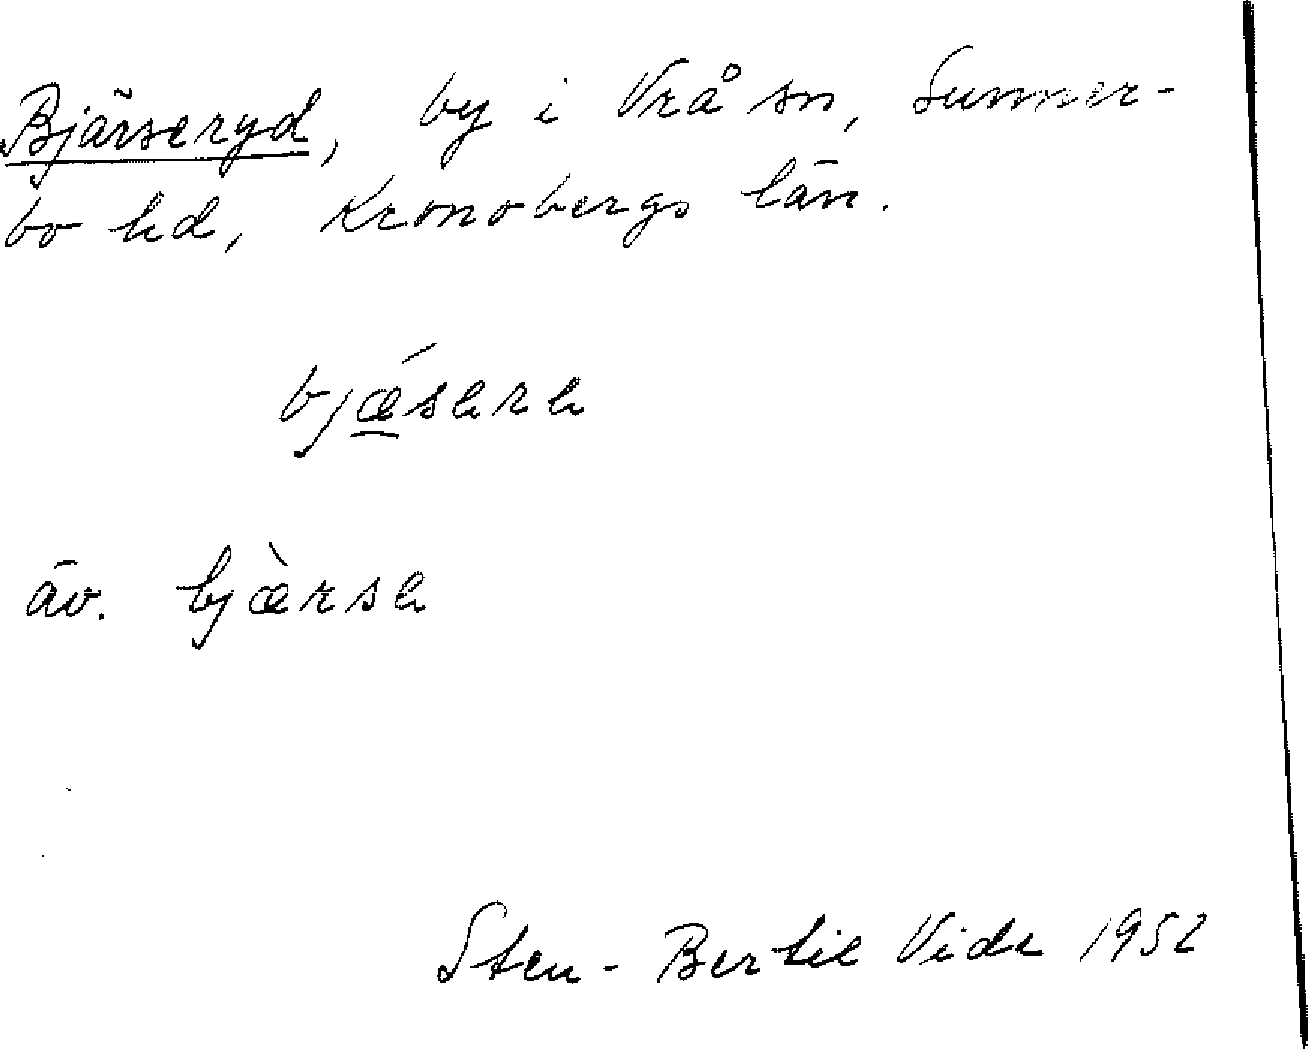 Bjärseryd, by i Vrå sn, Sunner-
bo hd, Kronobergs län.
bjǽsere
äv. bjæ̀rse
Sten-Bertil Vide 1952